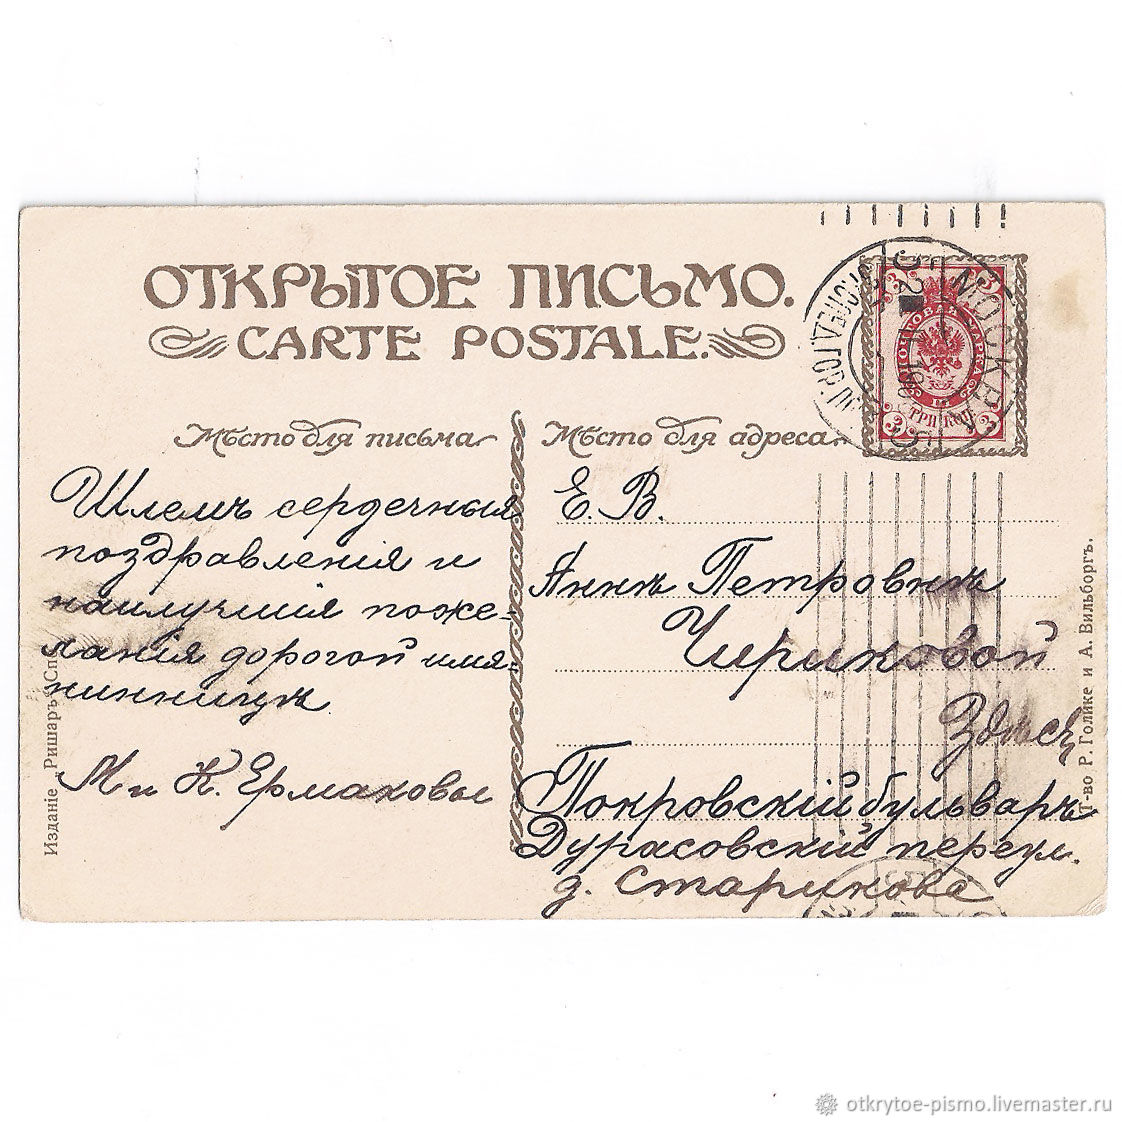 ОТКРЫТОЕ ПИСЬМО.
CARTE POSTALE.
Мѣсто для письма
Шлемъ сердечныя
поздравленія и
наилучшія поже-
ланія дорогой имя-
нинницѣ.
М и К. Ермаковы
Мѣсто для адреса
Е. В.
Аннѣ Петровнѣ
Чириковой
Здѣсь
Покровскій бульваръ
Дурасовскій переул.
д. Старикова
МОСКВА
ПОЧТОВАЯ МАРКА
ТРИ КОП.
3 3 3 3
Изданіе „Ришаръ“ Спб.
Т-во Р. Голике и А. Вильборгъ.
otkrytoe-pismo.livemaster.ru